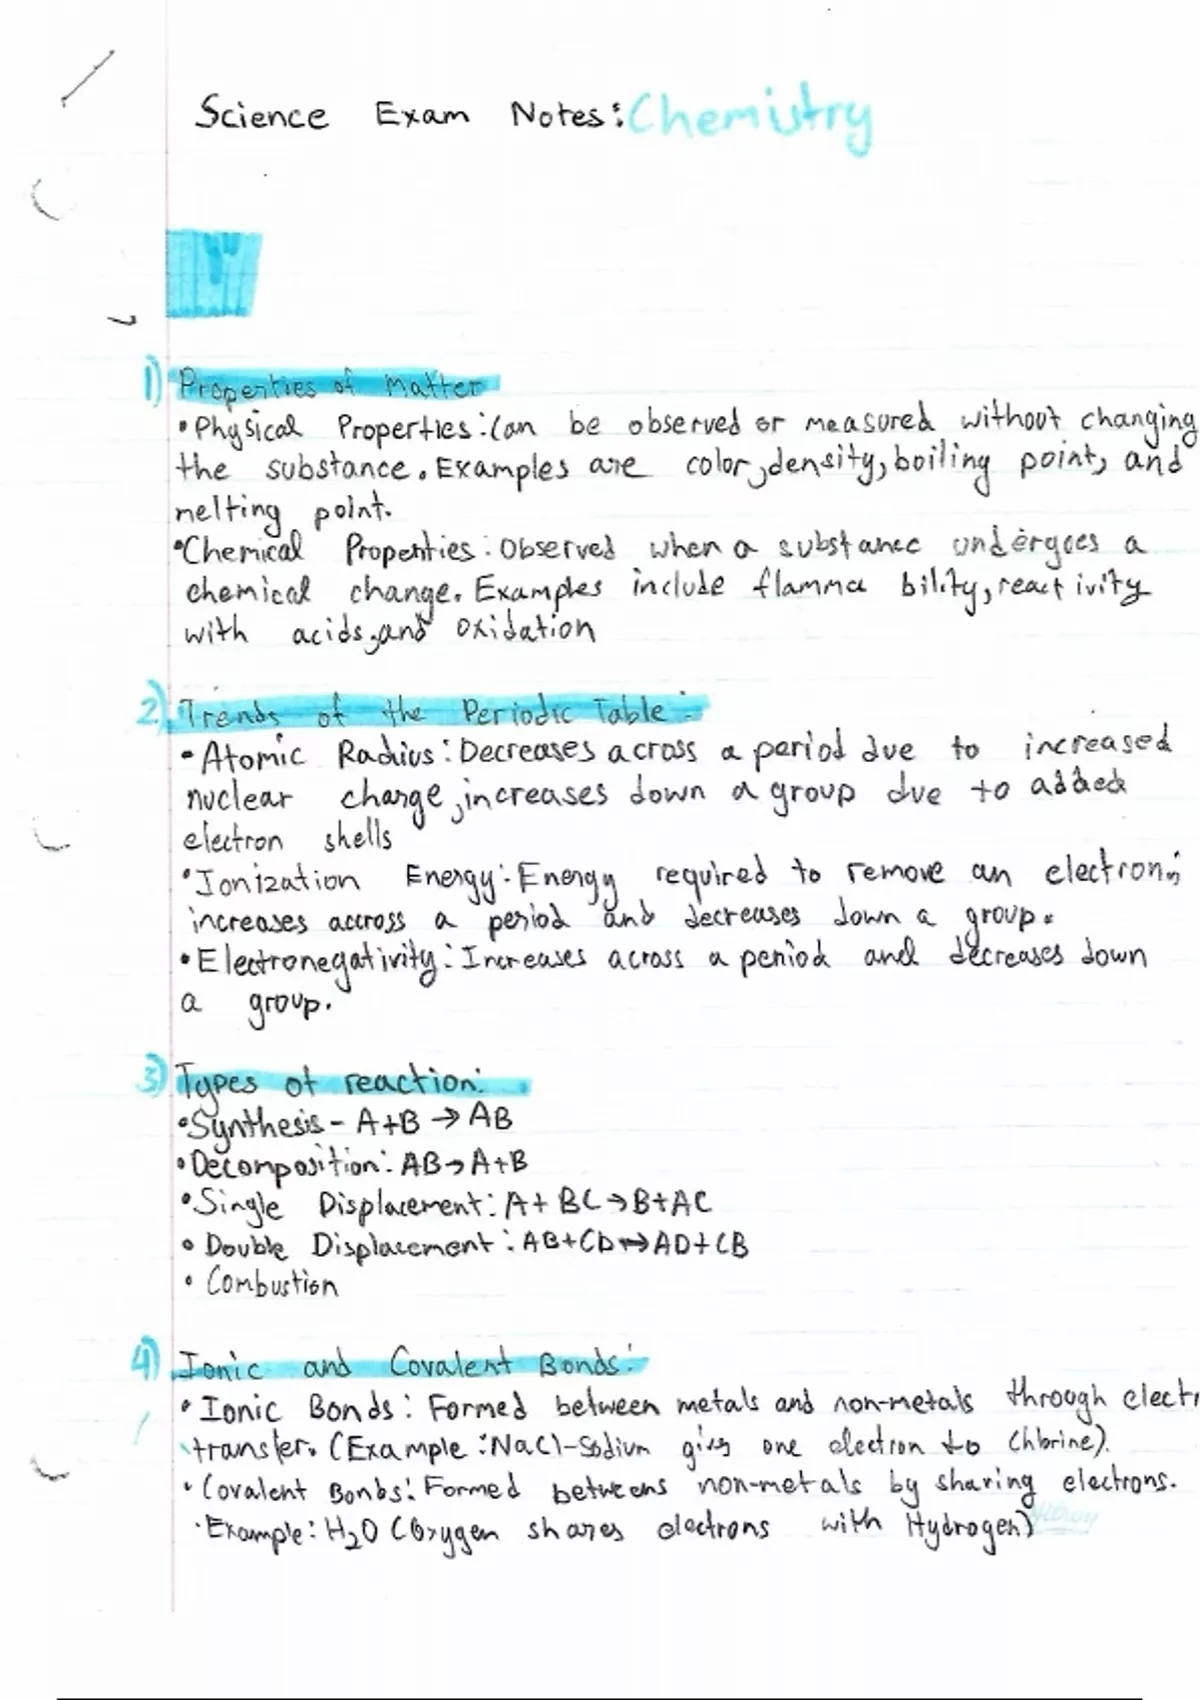 Science Exam Notes: Chemistry
1) Properties of Matter
• Physical Properties: Can be observed or measured without changing
the substance. Examples are color, density, boiling point, and
melting point.
• Chemical Properties: Observed when a substance undergoes a
chemical change. Examples include flamma bility, react ivity
with acids, and oxidation
2) Trends of the Periodic Table:
• Atomic Radius: Decreases across a period due to increased
nuclear charge, increases down a group due to added
electron shells
• Ionization Energy: Energy required to remove an electron;
increases accross a period and decreases down a group.
• Electronegativity: Increases across a period and decreases down
a group.
3) Types of reaction:
• Synthesis - A+B → AB
• Decomposition: AB → A+B
• Single Displacement: A + BC → B+AC
• Double Displacement: AB+CD → AD+CB
• Combustion
4) Ionic and Covalent Bonds:
• Ionic Bonds: Formed between metals and non-metals through electr
transfer. (Example: NaCl-Sodium gives one electron to Chlorine).
• Covalent Bonds: Formed betweens non-metals by sharing electrons.
• Example: H₂O (Oxygen shares electrons with Hydrogen)